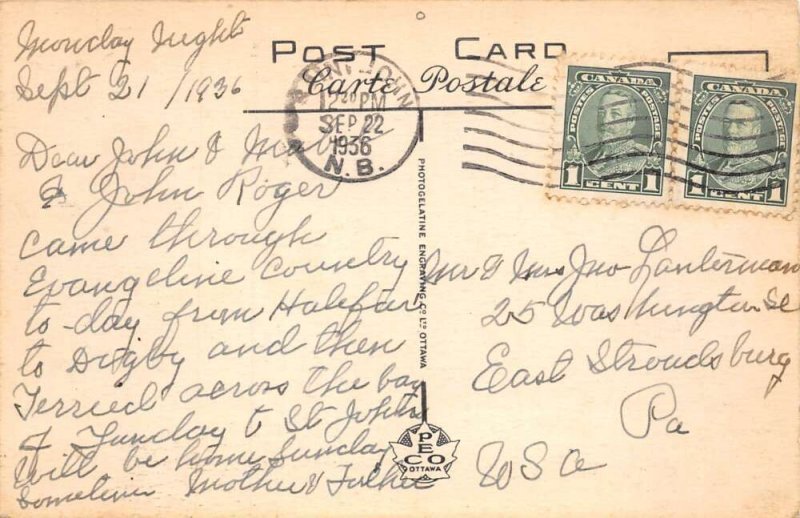 Monday Night
Sept 21/1936
Dear John &
& John Roger
came through
Evangeline Country
to-day from Halifax
to Digby and then
Ferried across the bay
of Funday to St John
Will be home Sunday
Sometime Mother & Father
POST CARD
Carte Postale
12 PM
SEP 22
1936
N.B.
CANADA
POSTES POSTAGE
1 CENT 1
CANADA
POSTES POSTAGE
1 CENT 1
PHOTOGELATINE ENGRAVING CO LTD OTTAWA
PECO
OTTAWA
Mr & Mrs Jno Lanterman
25 Washington St
East Stroudsburg
Pa
USA